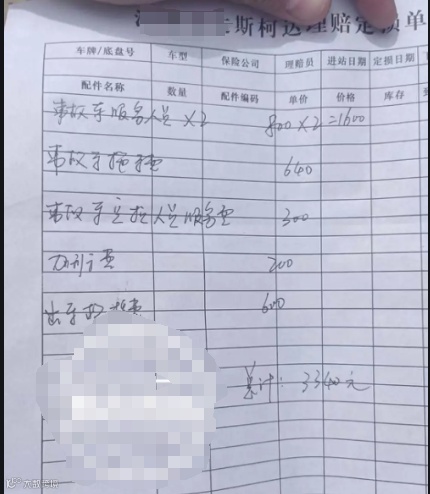 斯柯达理赔定损单
车牌/底盘号 车型 保险公司 理赔员 进站日期 定损日期
配件名称 数量 配件编码 单价 价格 库存
事故车服务人员×2 800×2=1600
事故车拖车费 640
事故车 人员服务费 300
200
出车 费 600
总计: 3340元